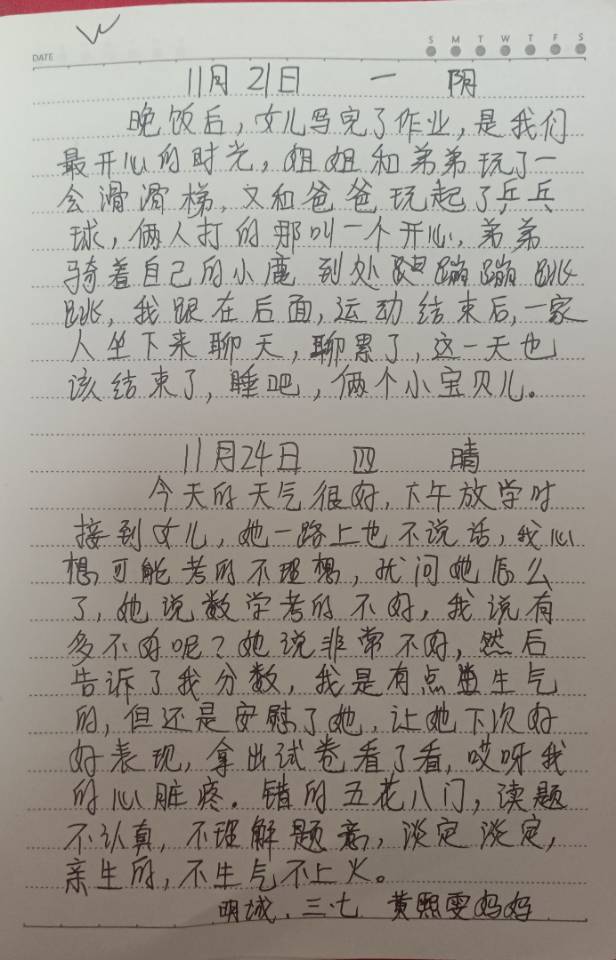 DATE
S M T W T F S
11月21日 一 阴
晚饭后，女儿写完了作业，是我们
最开心的时光，姐姐和弟弟玩了一
会滑滑梯，又和爸爸玩起了乒乓
球，俩人打的那叫一个开心，弟弟
骑着自己的小鹿到处蹦蹦跳
跳，我跟在后面，运动结束后，一家
人坐下来聊天，聊累了，这一天也
该结束了，睡吧，俩个小宝贝儿。
11月24日 四 晴
今天的天气很好，下午放学时
接到女儿，她一路上也不说话，我心
想可能考的不理想，就问她怎么
了，她说数学考的不好，我说有
多不好呢？她说非常不好，然后
告诉了我分数，我是有点生气
的，但还是安慰了她，让她下次好
好表现，拿出试卷看了看，哎呀我
的心脏疼。错的五花八门，读题
不认真，不理解题意，淡定淡定，
亲生的，不生气不上火。
明城．三·七 黄熙雯妈妈